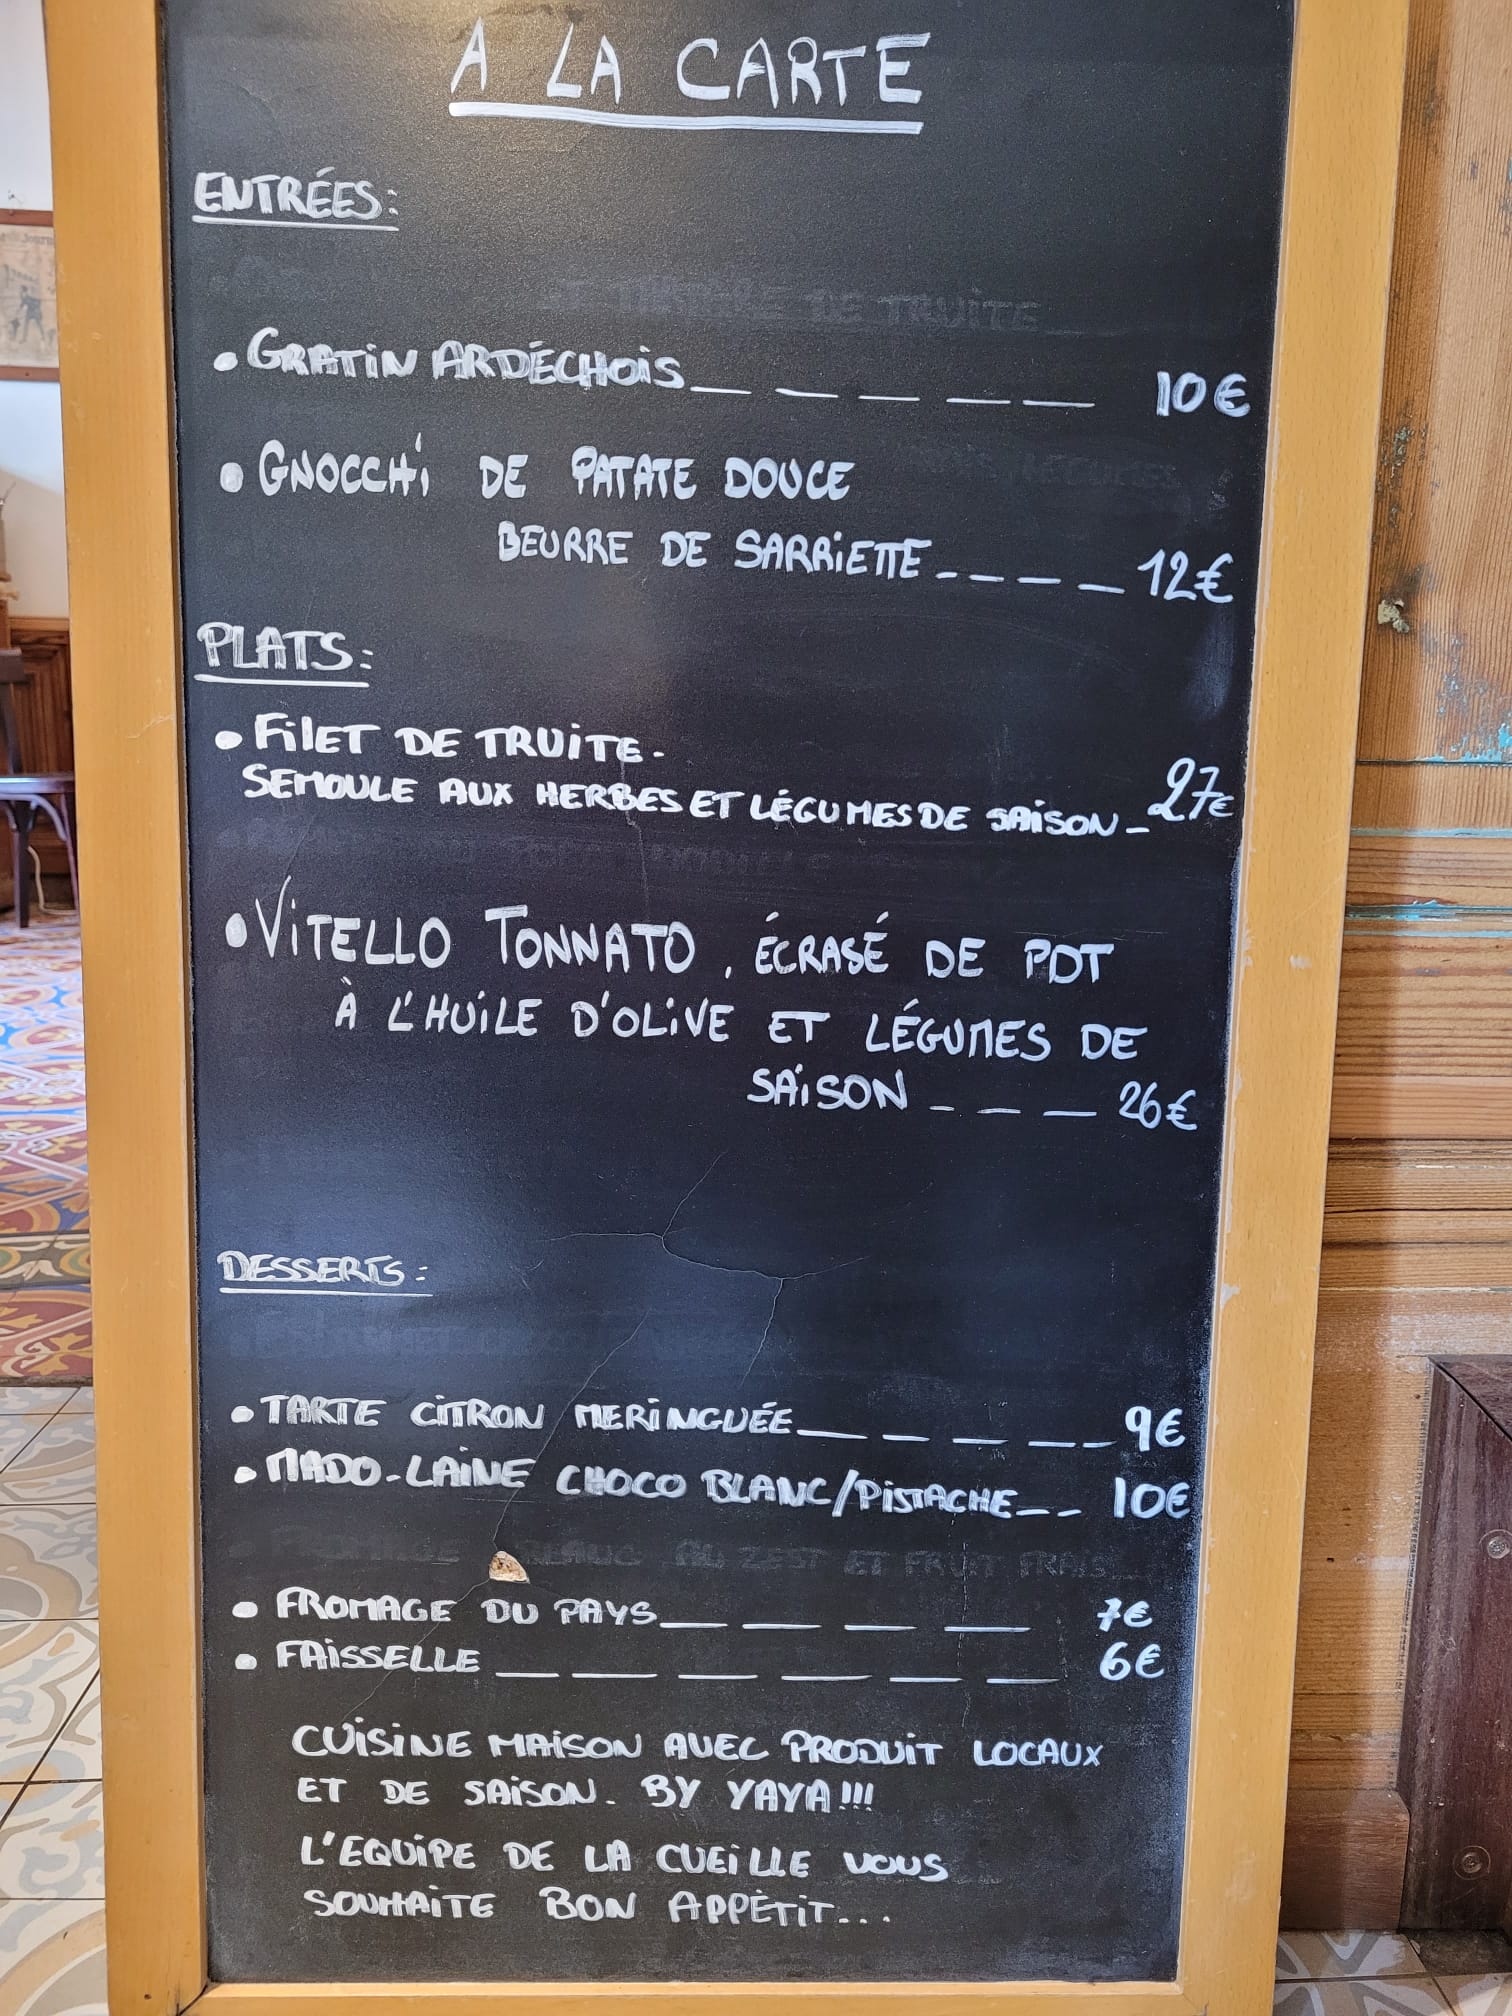 A LA CARTE
ENTRÉES:
DE TRUITE
• GRATIN ARDÉCHOIS _ _ _ _ _ 10€
• GNOCCHI DE PATATE DOUCE
BEURRE DE SARRIETTE _ _ _ _ 12€
PLATS:
• FILET DE TRUITE -
SEMOULE AUX HERBES ET LÉGUMES DE SAISON - 27€
• VITELLO TONNATO, ÉCRASÉ DE PDT
À L'HUILE D'OLIVE ET LÉGUMES DE
SAISON _ _ _ 26€
DESSERTS:
• TARTE CITRON MERINGUÉE _ _ _ _ _ 9€
• MADO-LAINE CHOCO BLANC/PISTACHE _ _ 10€
BLANC AU ZEST ET FRUIT FRAIS
• FROMAGE DU PAYS _ _ _ _ 7€
• FAISSELLE _ _ _ _ _ _ 6€
CUISINE MAISON AVEC PRODUIT LOCAUX
ET DE SAISON. BY YAYA!!!
L'EQUIPE DE LA CUEILLE VOUS
SOUHAITE BON APPÈTIT...